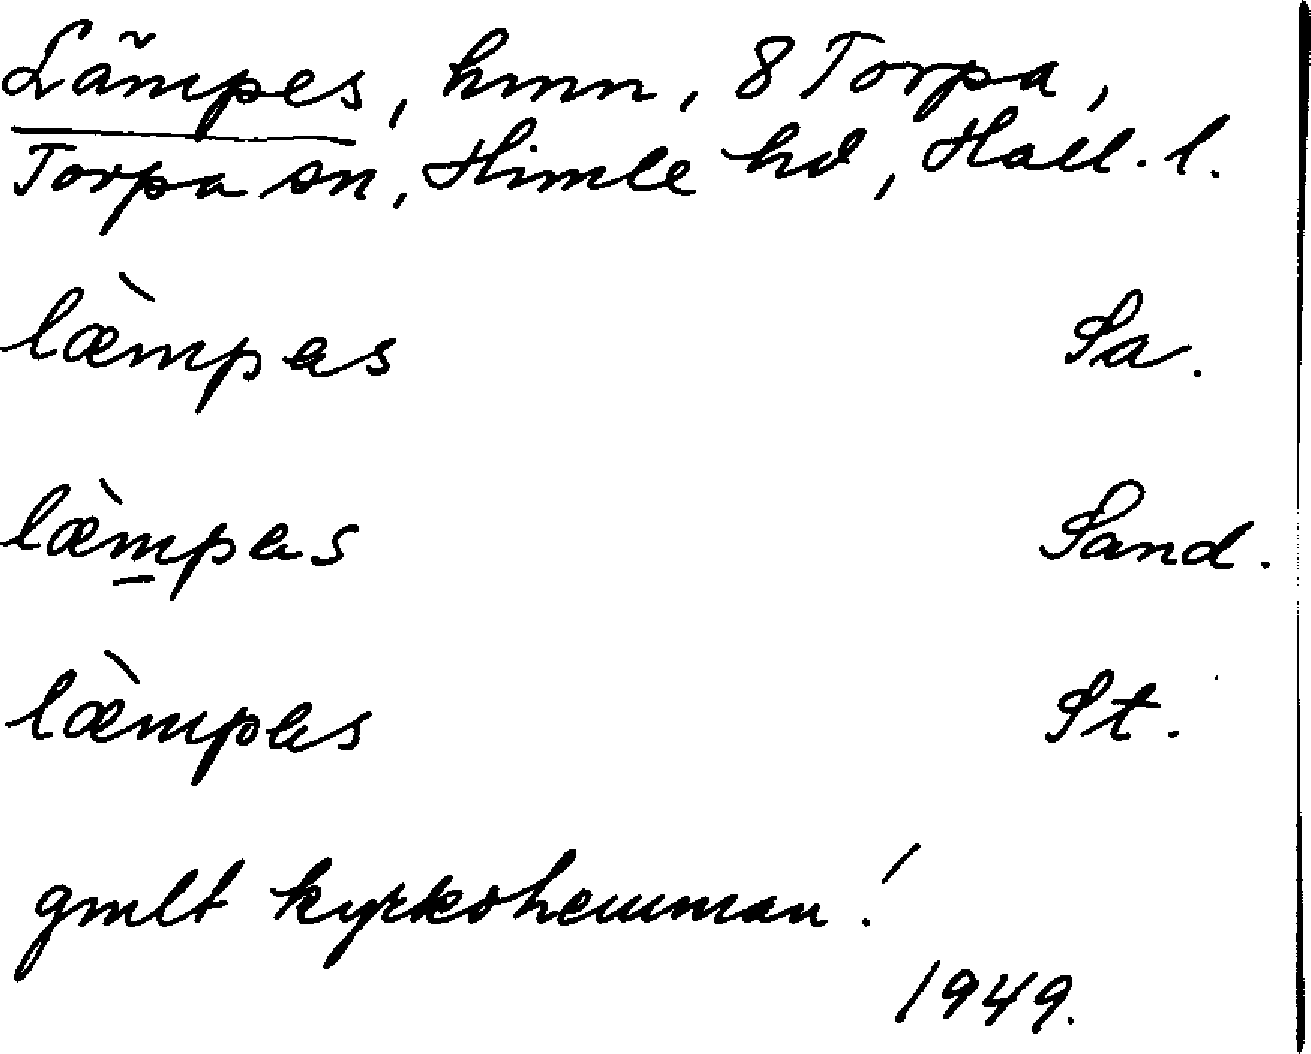 Lämpes, hmn, 8 Torpa,
Torpa sn, Himle hd, Hall. l.
læ̀mpas Sa.
læ̀m̲pas Sand.
læ̀mpas St.
gmlt kyrkohemman!
1949.